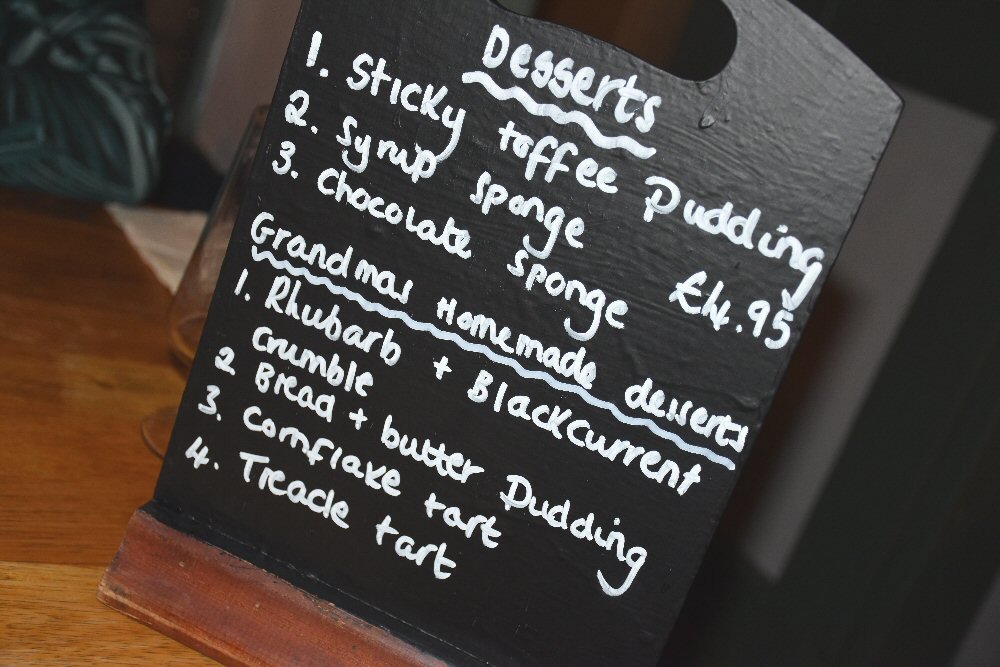 Desserts
1. Sticky toffee Pudding
2. Syrup sponge
3. Chocolate sponge £4.95
Grandmas Homemade desserts
1. Rhubarb + Blackcurrent
crumble
2 Bread + butter Pudding
3. Cornflake tart
4. Treacle tart